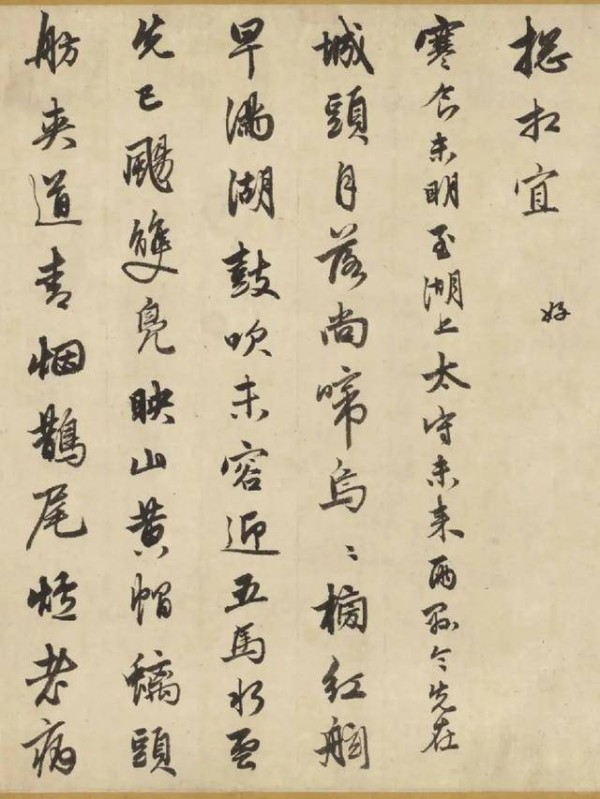 揔相宜
好
寒食未明至湖上太守未来兩縣令先在
城頭月落尚啼烏〻榜紅舷
早滿湖鼓吹未容迎五馬水雲
先已颺雙鳧映山黃帽螭頭
舫夾道青烟鵲尾爐老病